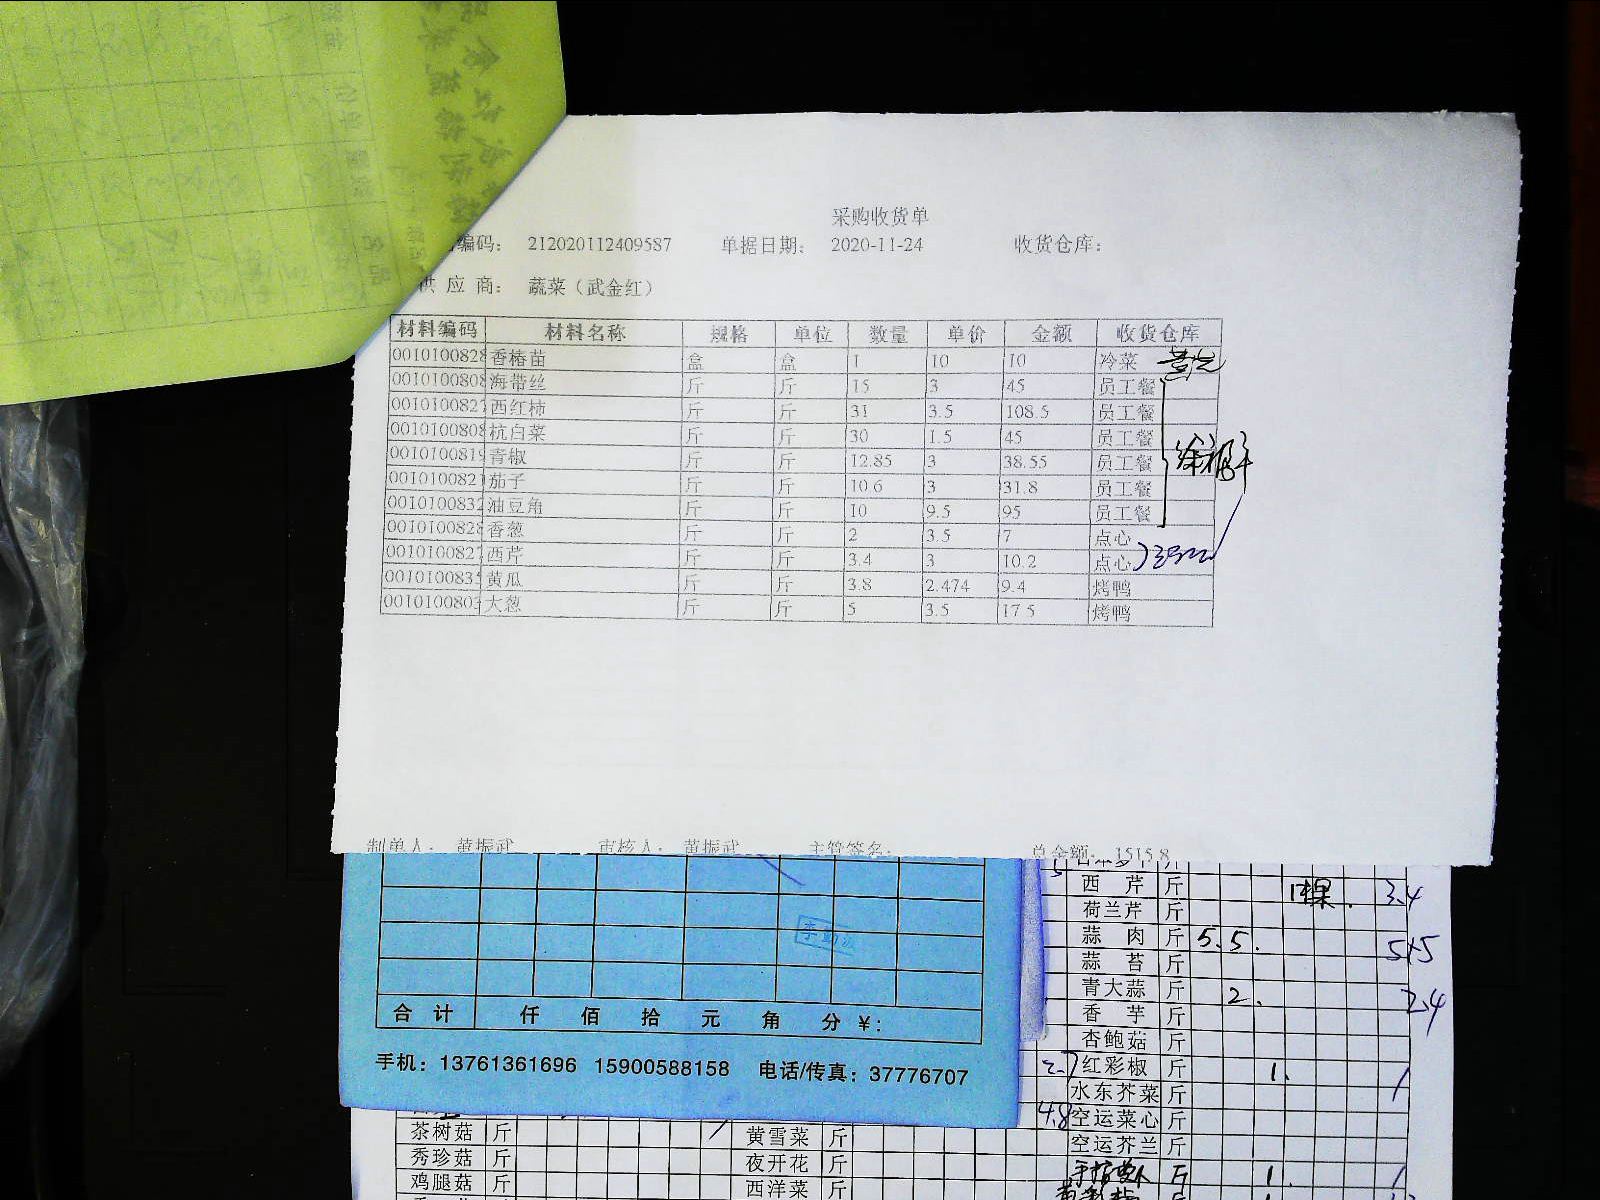 采购收货单
编码： 212020112409587 单据日期： 2020-11-24 收货仓库：
供 应 商： 蔬菜（武金红）
材料编码 材料名称 规格 单位 数量 单价 金额 收货仓库
0010100828 香椿苗 盒 盒 1 10 10 冷菜
0010100808 海带丝 斤 斤 15 3 45 员工餐
0010100827 西红柿 斤 斤 31 3.5 108.5 员工餐
0010100808 杭白菜 斤 斤 30 1.5 45 员工餐
0010100819 青椒 斤 斤 12.85 3 38.55 员工餐
0010100821 茄子 斤 斤 10.6 3 31.8 员工餐
0010100832 油豆角 斤 斤 10 9.5 95 员工餐
0010100828 香葱 斤 斤 2 3.5 7 点心
0010100827 西芹 斤 斤 3.4 3 10.2 点心
0010100835 黄瓜 斤 斤 3.8 2.474 9.4 烤鸭
0010100803 大葱 斤 斤 5 3.5 17.5 烤鸭
制单人： 黄振武 审核人： 黄振武 主管签名： 总金额： 1515.8
合 计 仟 佰 拾 元 角 分 ￥：
手机：13761361696 15900588158 电话/传真：37776707
西 芹 斤 3.4
荷兰芹 斤
蒜 肉 斤 5.5. 5+5
蒜 苔 斤
青大蒜 斤 2. 2.4
香 芋 斤
杏鲍菇 斤
2.7 红彩椒 斤 1. 1
水东芥菜 斤
4.8 空运菜心 斤
空运芥兰 斤
斤 1. 1
茶树菇 斤 1 黄雪菜 斤
秀珍菇 斤 夜开花 斤
鸡腿菇 斤 西洋菜 斤